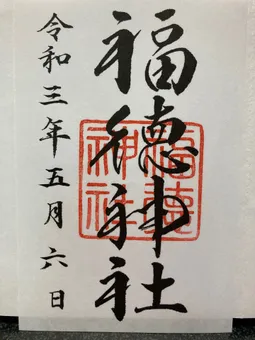 福徳神社
令和三年五月六日
福徳
神社